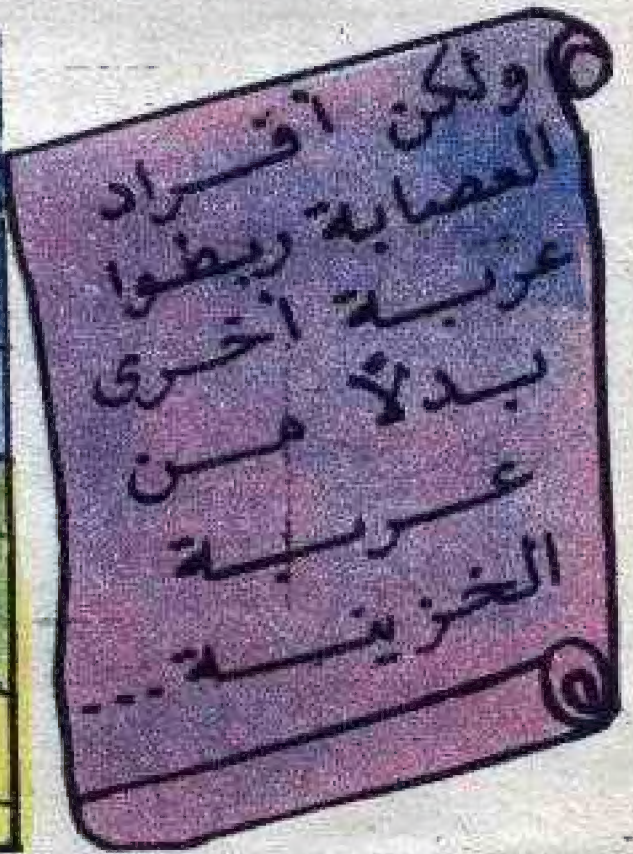 ولكن أفراد
العصابة ربطوا
عربة أخرى
بدلاً من
عربة
الخزينة...